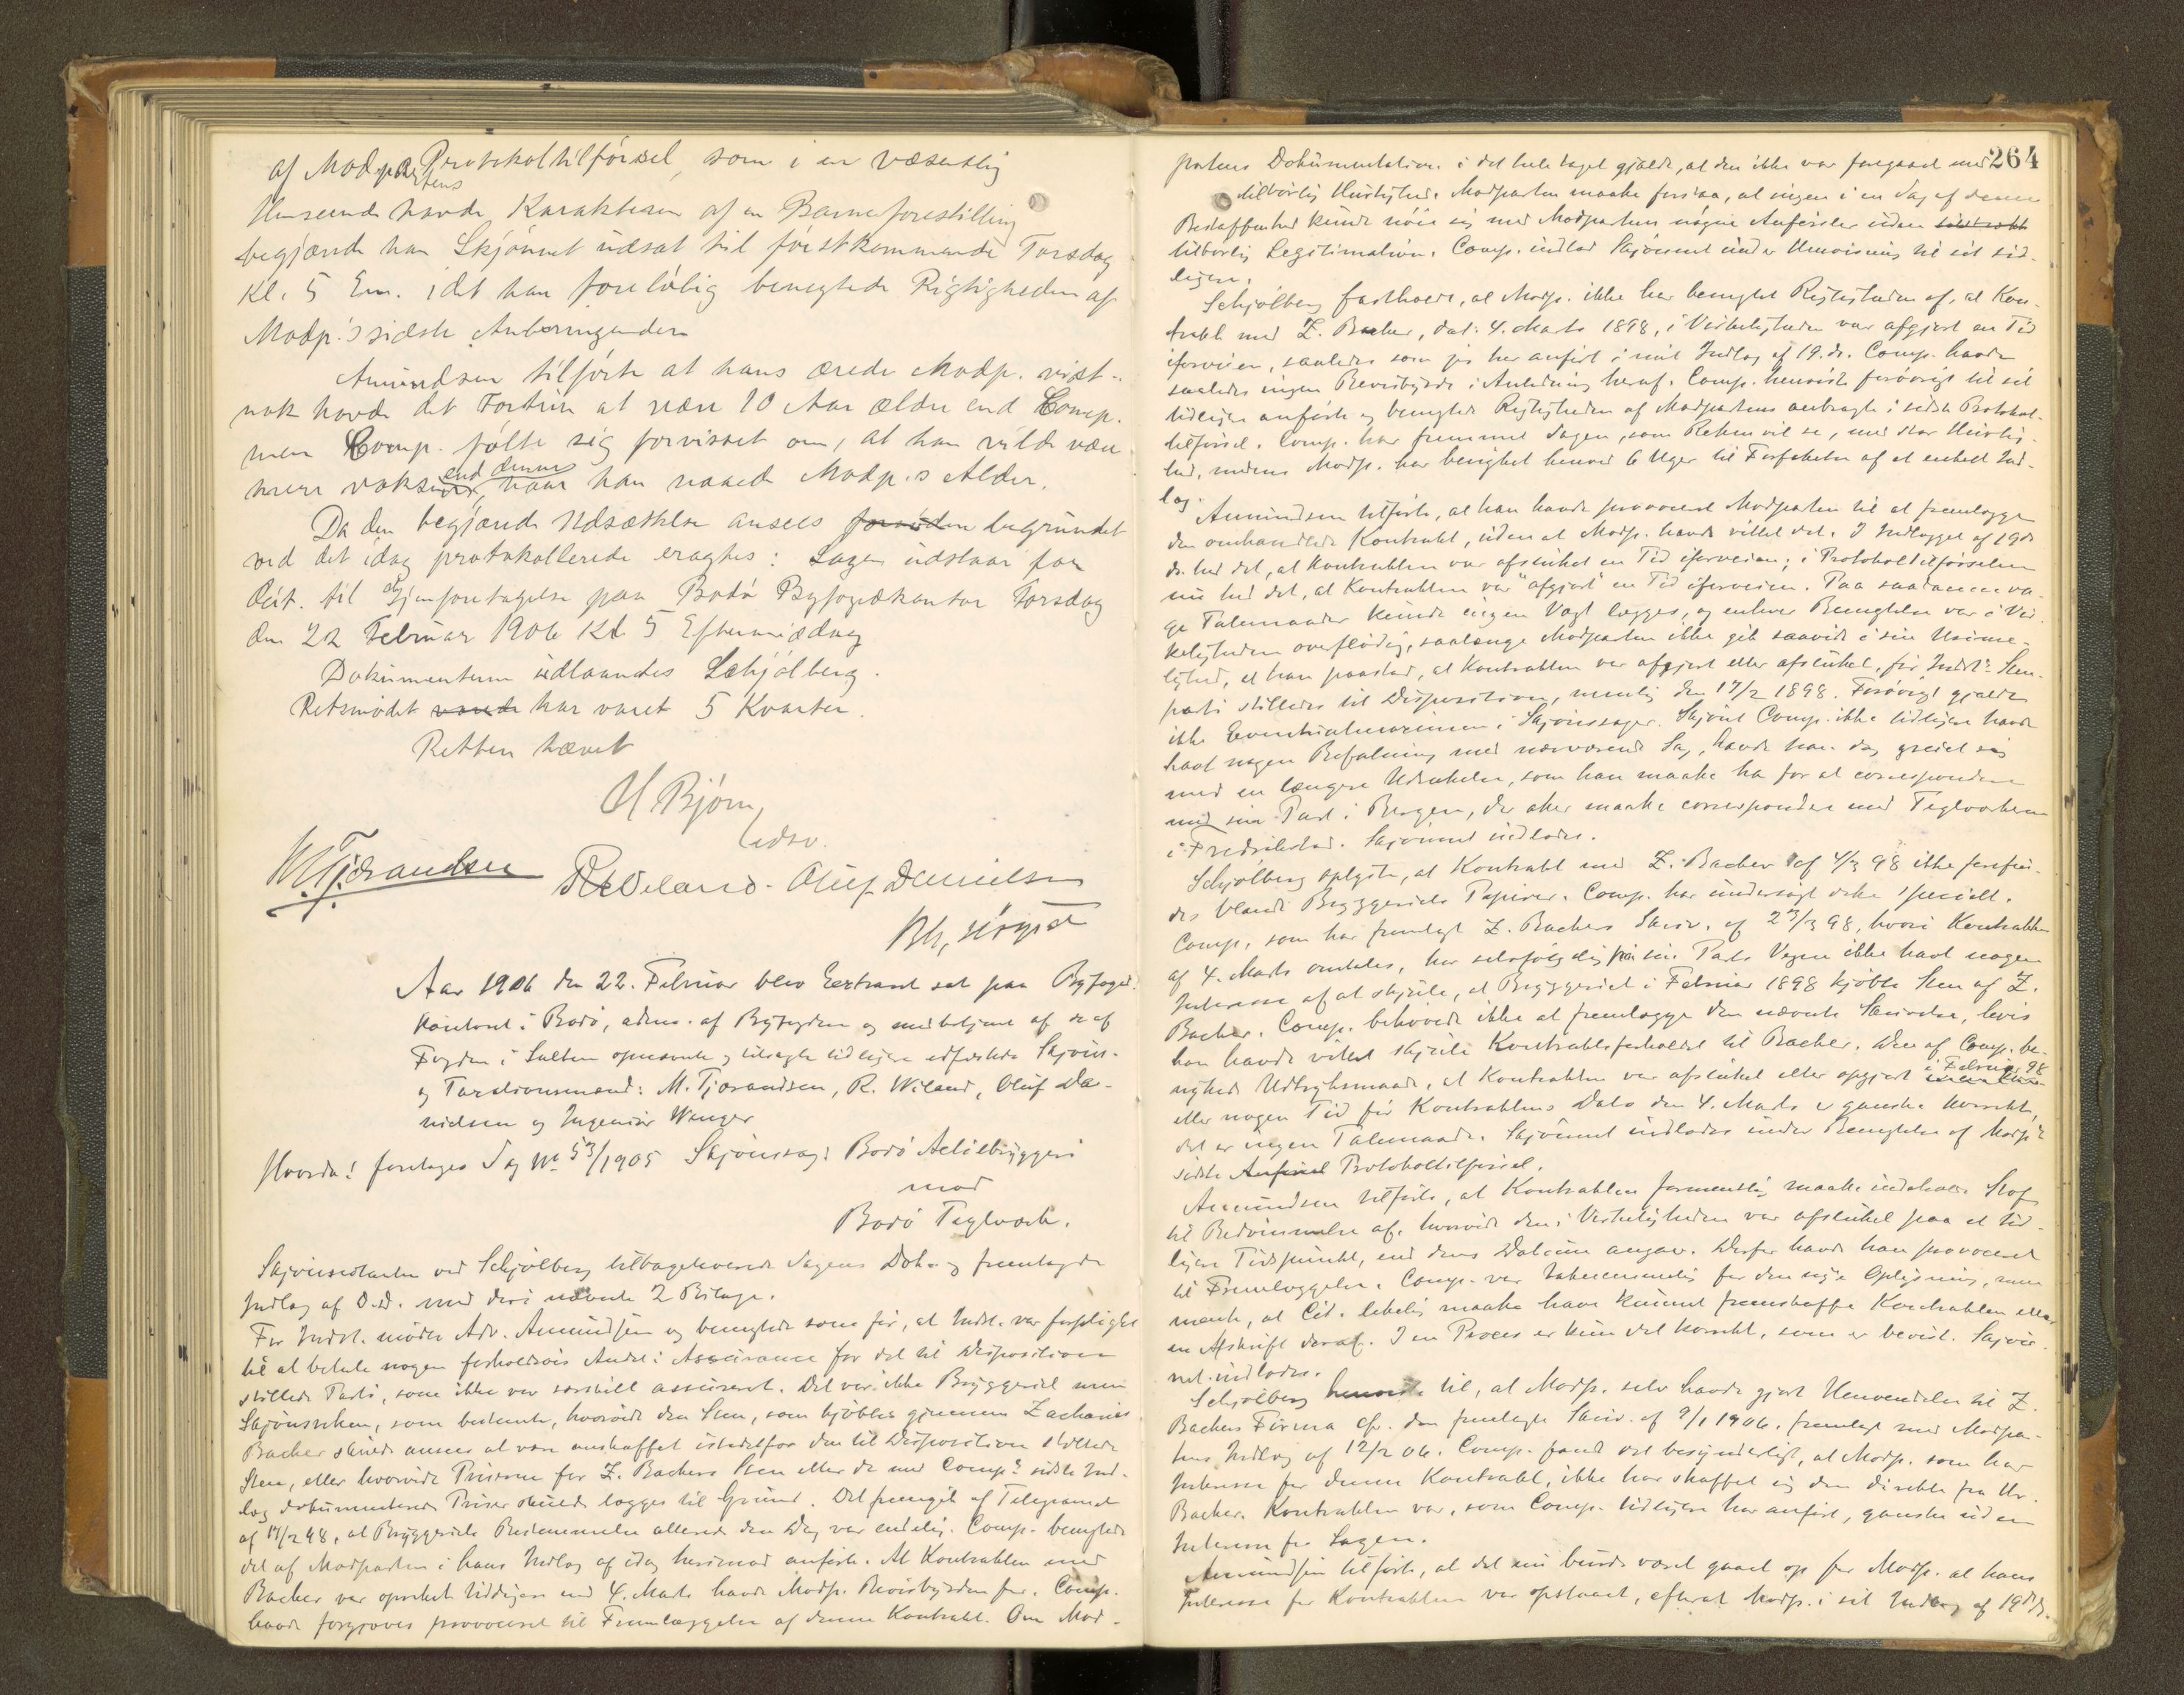 af Modpartens Protokoltilførsel, som i en væsentlig
Henseende havde Karakteren af en Barneforestilling
begjærede han Skjønnet udsat til førstkommende Torsdag
Kl. 5 Em. idet han foreløbig benegtede Rigtigheden af
Modp.'s sidste Anbringender
Amundsen tilførte at hans ærede Modp. vist-
nok havde det Fortrin at være 10 Aar ældre end Comp.
men Comp. følte sig forvisset om, at han vilde være
mere voksen end denne, naar han naaede Modp.s Alder.
Da den begjærede Udsættelse ansees begrundet
ved det idag protokollerede eragtes: Sagen udstaar paa
Cit. til Gjenforetagelse paa Bodø Byfogedkontor Torsdag
den 22 Februar 1906 Kl. 5 Eftermiddag
Dokumenterne udlaandes Schjølberg.
Retsmødet varede har varet 5 Kvarter.
Retten hævet
H. Bjørn,
edsv.
M Tjørandsen R Weiland. Oluf Danielsen
Aar 1906 den 22. Februar blev Extraret sat paa Byfoged-
kontoret i Bodø, adms. af Byfogden og medbetjent af de af
Fogden i Salten opnævnte og tilsagte tidligere edfæstede Skjøns-
og Taxationsmænd: M. Tjørandsen, R. Wiland, Oluf Da-
nielsen og Ingeniør Wenger
Hvorda: foretages Sag No 53/1905 Skjønssag: Bodø Actiebryggeri
mod
Bodø Teglværk.
Skjønscitanten ved Schjølberg tilbageleverede Sagens Dok. og fremlagde
Indlæg af D.D. med deri nævnte 2 Bilage.
For Indst. mødte Adv. Amundsen og benegtede som før, at Indst. var forpligtet
til at betale nogen forholdsvis Andel i Assurance for det til Disposition
stillede Parti, som ikke var særskilt assureret. Det var ikke Bryggeriet men
Skjønsretten, som bestemte, hvorvidt den Sten, som kjøbtes gjennem Zacharias
Backer skulde ansees at være anskaffet istedetfor den til Disposition stillede
Sten, eller hvorvidt Priserne for Z. Backers Sten eller de med Comp.s sidste Ind-
læg dokumenterede Priser skulde lægges til Grund. Det fremgik af Telegrammet
af 17/2 98, at Bryggeriets Bestemmelse allerede den Dag var endelig. Comp. benegtede
det af Modparten i hans Indlæg af idag herimod anførte. At Kontrakten med
Backer var oprettet tidligere end 4. Marts havde Modp. Bevisbyrden for. Comp.
havde forgjæves provoceret til Fremlæggelse af denne Kontrakt. Om Mod-
264
partens Dokumentation i det hele taget gjaldt, at den ikke var foregaaet med
tilbørlig Hurtighed. Modparten maatte forstaa, at ingen i en Sag af denne
Beskaffenhed kunde nøie sig med Modpartens nøgne Anførsler uden
tilbørlig Legitimation. Comp. indlod Skjønnet under Henvisning til sit tid-
ligere.
Schjølberg fastholdt, at Modp. ikke har benegtet Rigtigheden af, at Kon-
trakt med Z. Backer, dat. 4. Marts 1898, i Virkeligheden var afgjort en Tid
iforveien, saaledes som jeg har anført i mit Indlæg af 19. ds. Comp. havde
saaledes ingen Bevisbyrde i Anledning heraf. Comp. henviste forøvrigt til sit
tidligere anførte og benegtede Rigtigheden af Modpartens anbragte i sidste Protokol-
tilførsel. Comp. har fremmet Sagen, som Retten vil se, med stor Hurtig-
hed, medens Modp. har benyttet henved 6 Uger til Forfattelse af et enkelt Ind-
læg.
Amundsen tilførte, at han havde provoceret Modparten til at fremlægge
den omhandlede Kontrakt, uden at Modp. havde villet det. I Indlægget af 19de
ds. hed det, at Kontrakten var afsluttet en Tid iforveien; i Protokoltilførselen
nu hed det, at Kontrakten var "afgjort" en Tid iforveien. Paa saadanne va-
ge Talemaader kunde ingen Vægt lægges, og enhver Benegtelse var i Vir-
keligheden overflødig, saalænge Modparten ikke gik saavidt i sin Usinne-
lighed, at han paastod, at Kontrakten var afgjort eller afsluttet, før Indst's Sten-
parti stilledes til Disposition, nemlig den 17/2 1898. Forøvrigt gjaldt
ikke Eventualmaximen i Skjønssager. Skjønt Comp. ikke tidligere havde
havt nogen Befatning med nærværende Sag, havde han dog greiet sig
med en længere Udsættelse, som han maatte ha for at correspondere
med sin Part i Bergen, der atter maatte correspondere med Teglværkerne
i Fredrikstad. Skjønnet indlodes.
Schjølberg oplyste, at Kontrakt med Z. Backer af 4/3 98 ikke forefin-
des blandt Bryggeriets Papirer. Comp. har undersøgt dette specielt.
Comp. som har fremlagt Z. Backers Skriv. af 23/3 98, hvori Kontrakten
af 4. Marts omtales, har selvfølgelig paa sin Parts Vegne ikke havt nogen
Interesse af at skjule, at Bryggeriet i Februar 1898 kjøbte Sten af Z.
Backer. Comp. behøvede ikke at fremlægge den nævnte Skrivelse, hvis
han havde villet skjule Kontraktsforholdet til Backer. Den af Comp. be-
nyttede Udtryksmaade, at Kontrakten var afsluttet eller opgjort i Februar 98
eller nogen Tid før Kontraktens Dato den 4. Marts er ganske korrekt,
det er ingen Talemaade. Skjønnet indlodes under Benegtelse af Modp's
sidste Protokoltilførsel.
Amundsen tilførte, at Kontrakten formentlig maatte indeholde Stof
til Bedømmelse af, hvorvidt den i Virkeligheden var afsluttet paa et tid-
ligere Tidspunkt, end dens Datum angav. Derfor havde han provoceret
til Fremlæggelse. Comp. var taknemmelig for den nye Oplysning, men
mente, at Cit. letelig maatte have kunnet fremskaffe Kontrakten eller
en Afskrift deraf. I en Proces er kun det korrekt, som er bevist. Skjøn-
net indlodes.
Schjølberg henviste til, at Modp. selv havde gjort Henvendelse til Z.
Backers Firma cfr. den fremlagte Skriv. af 9/1 1906. fremlagt med Modpar-
tens Indlæg af 12/2 06. Comp. fandt det besynderligt, at Modp. som har
Interesse for denne Kontrakt, ikke har skaffet sig den direkte fra Hr.
Backer. Kontrakten var, som Comp. tidligere har anført, ganske uden
Interesse for Sagen.
Amundsen tilførte, at det nu burde været gaaet op for Modp. at hans
Interesse for Kontrakten var opstaaet, efterat Modp. i sit Indlæg af 19de ds.